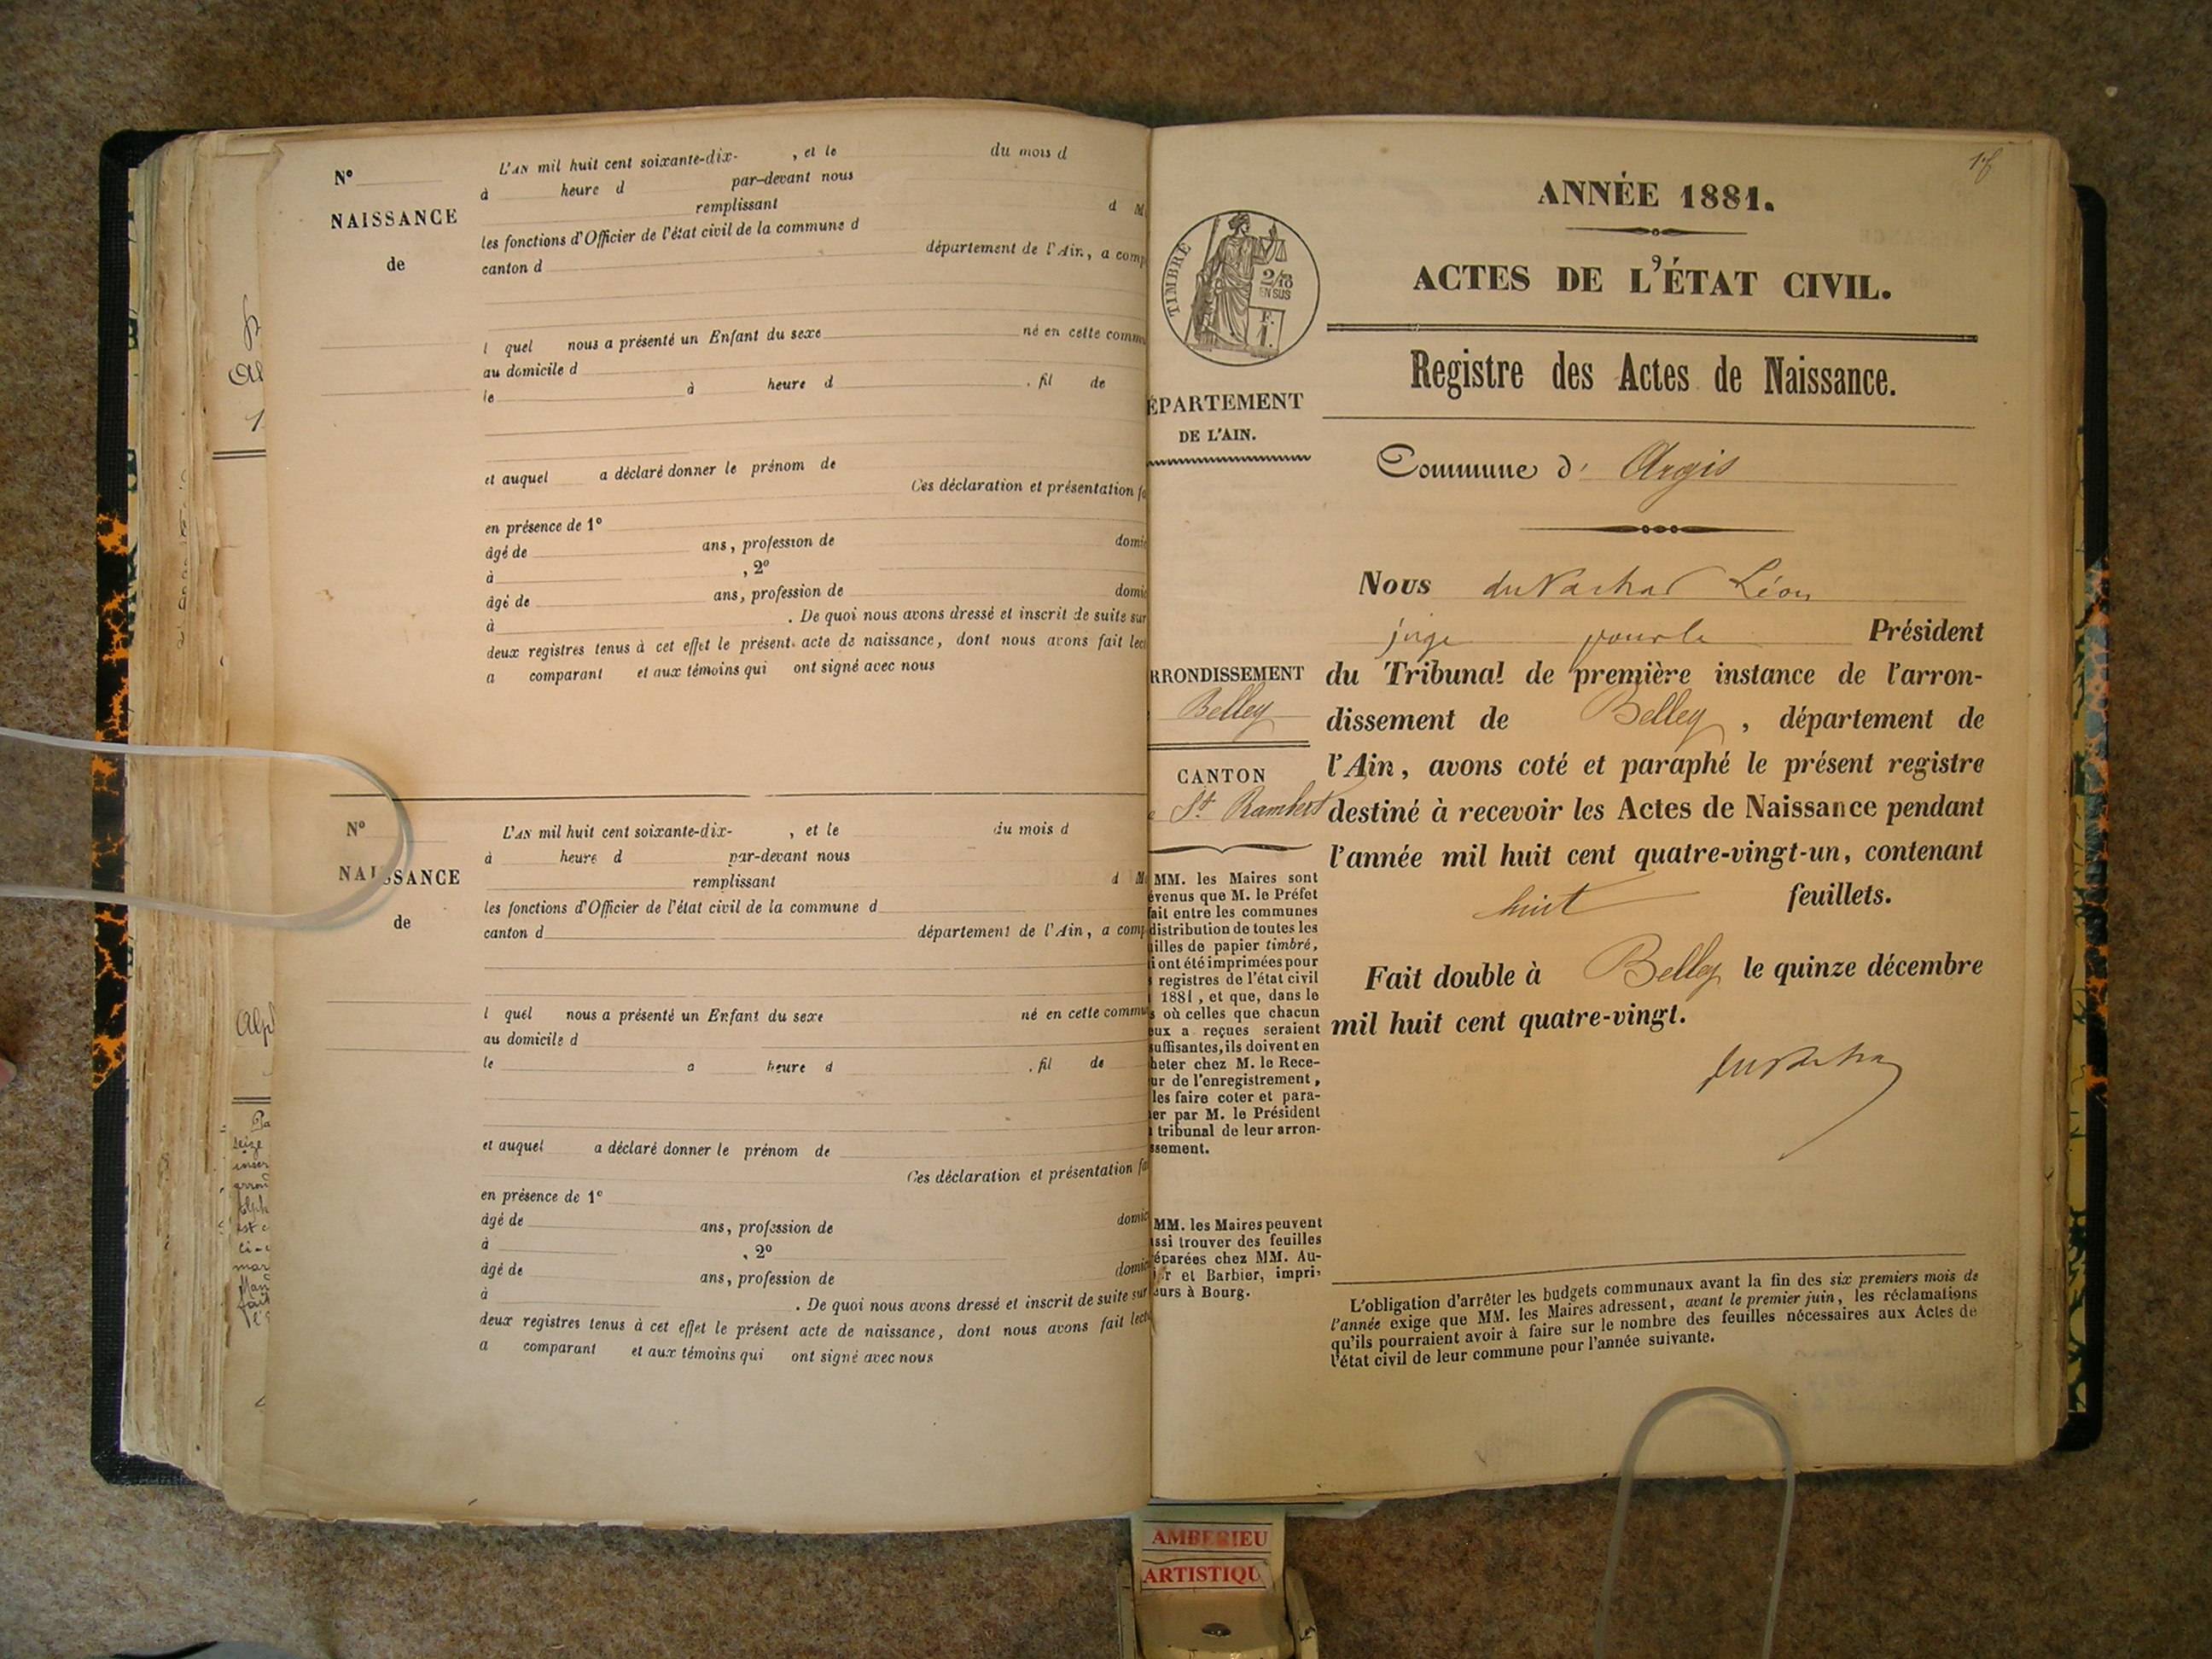 N°
NAISSANCE
de
L'AN mil huit cent soixante-dix- , et le du mois d
à heure d par-devant nous
remplissant d M
les fonctions d'Officier de l'état civil de la commune d
canton d département de l'Ain, a comp
l quel nous a présenté un Enfant du sexe né en cette comm
au domicile d
le à heure d . fil de
et auquel a déclaré donner le prénom de
Ces déclaration et présentation fa
en présence de 1°
âgé de ans, profession de domi
à , 2°
âgé de ans, profession de domi
à . De quoi nous avons dressé et inscrit de suite sur
deux registres tenus à cet effet le présent acte de naissance, dont nous avons fait lec
a comparant et aux témoins qui ont signé avec nous
N°
NAISSANCE
de
L'AN mil huit cent soixante-dix- , et le du mois d
à heure d par-devant nous
remplissant d M
les fonctions d'Officier de l'état civil de la commune d
canton d département de l'Ain, a comp
l quel nous a présenté un Enfant du sexe né en cette commu
au domicile d
le a heure d . fil de
et auquel a déclaré donner le prénom de
Ces déclaration et présentation fa
en présence de 1°
âgé de ans, profession de domic
à , 2°
âgé de ans, profession de domic
à . De quoi nous avons dressé et inscrit de suite sur
deux registres tenus à cet effet le présent acte de naissance, dont nous avons fait lectu
a comparant et aux témoins qui ont signé avec nous
TIMBRE
2/10
EN SUS
F.
1.
ÉPARTEMENT
DE L'AIN.
RRONDISSEMENT
Belley
CANTON
St Rambert
MM. les Maires sont
évenus que M. le Préfet
fait entre les communes
distribution de toutes les
illes de papier timbré,
i ont été imprimées pour
s registres de l'état civil
1881, et que, dans le
s où celles que chacun
eux a reçues seraient
suffisantes, ils doivent en
heter chez M. le Rece-
ur de l'enregistrement,
les faire coter et para-
er par M. le Président
tribunal de leur arron-
ssement.
MM. les Maires peuvent
ssi trouver des feuilles
éparées chez MM. Au-
r et Barbier, impri-
eurs à Bourg.
ANNÉE 1881.
ACTES DE L'ÉTAT CIVIL.
Registre des Actes de Naissance.
Commune d' Argis
Nous duNachat Léon
juge pour le Président
du Tribunal de première instance de l'arron-
dissement de Belley , département de
l'Ain, avons coté et paraphé le présent registre
destiné à recevoir les Actes de Naissance pendant
l'année mil huit cent quatre-vingt-un, contenant
huit feuillets.
Fait double à Belley le quinze décembre
mil huit cent quatre-vingt.
L'obligation d'arrêter les budgets communaux avant la fin des six premiers mois de
l'année exige que MM. les Maires adressent, avant le premier juin, les réclamations
qu'ils pourraient avoir à faire sur le nombre des feuilles nécessaires aux Actes de
l'état civil de leur commune pour l'année suivante.
AMBERIEU
ARTISTIQU